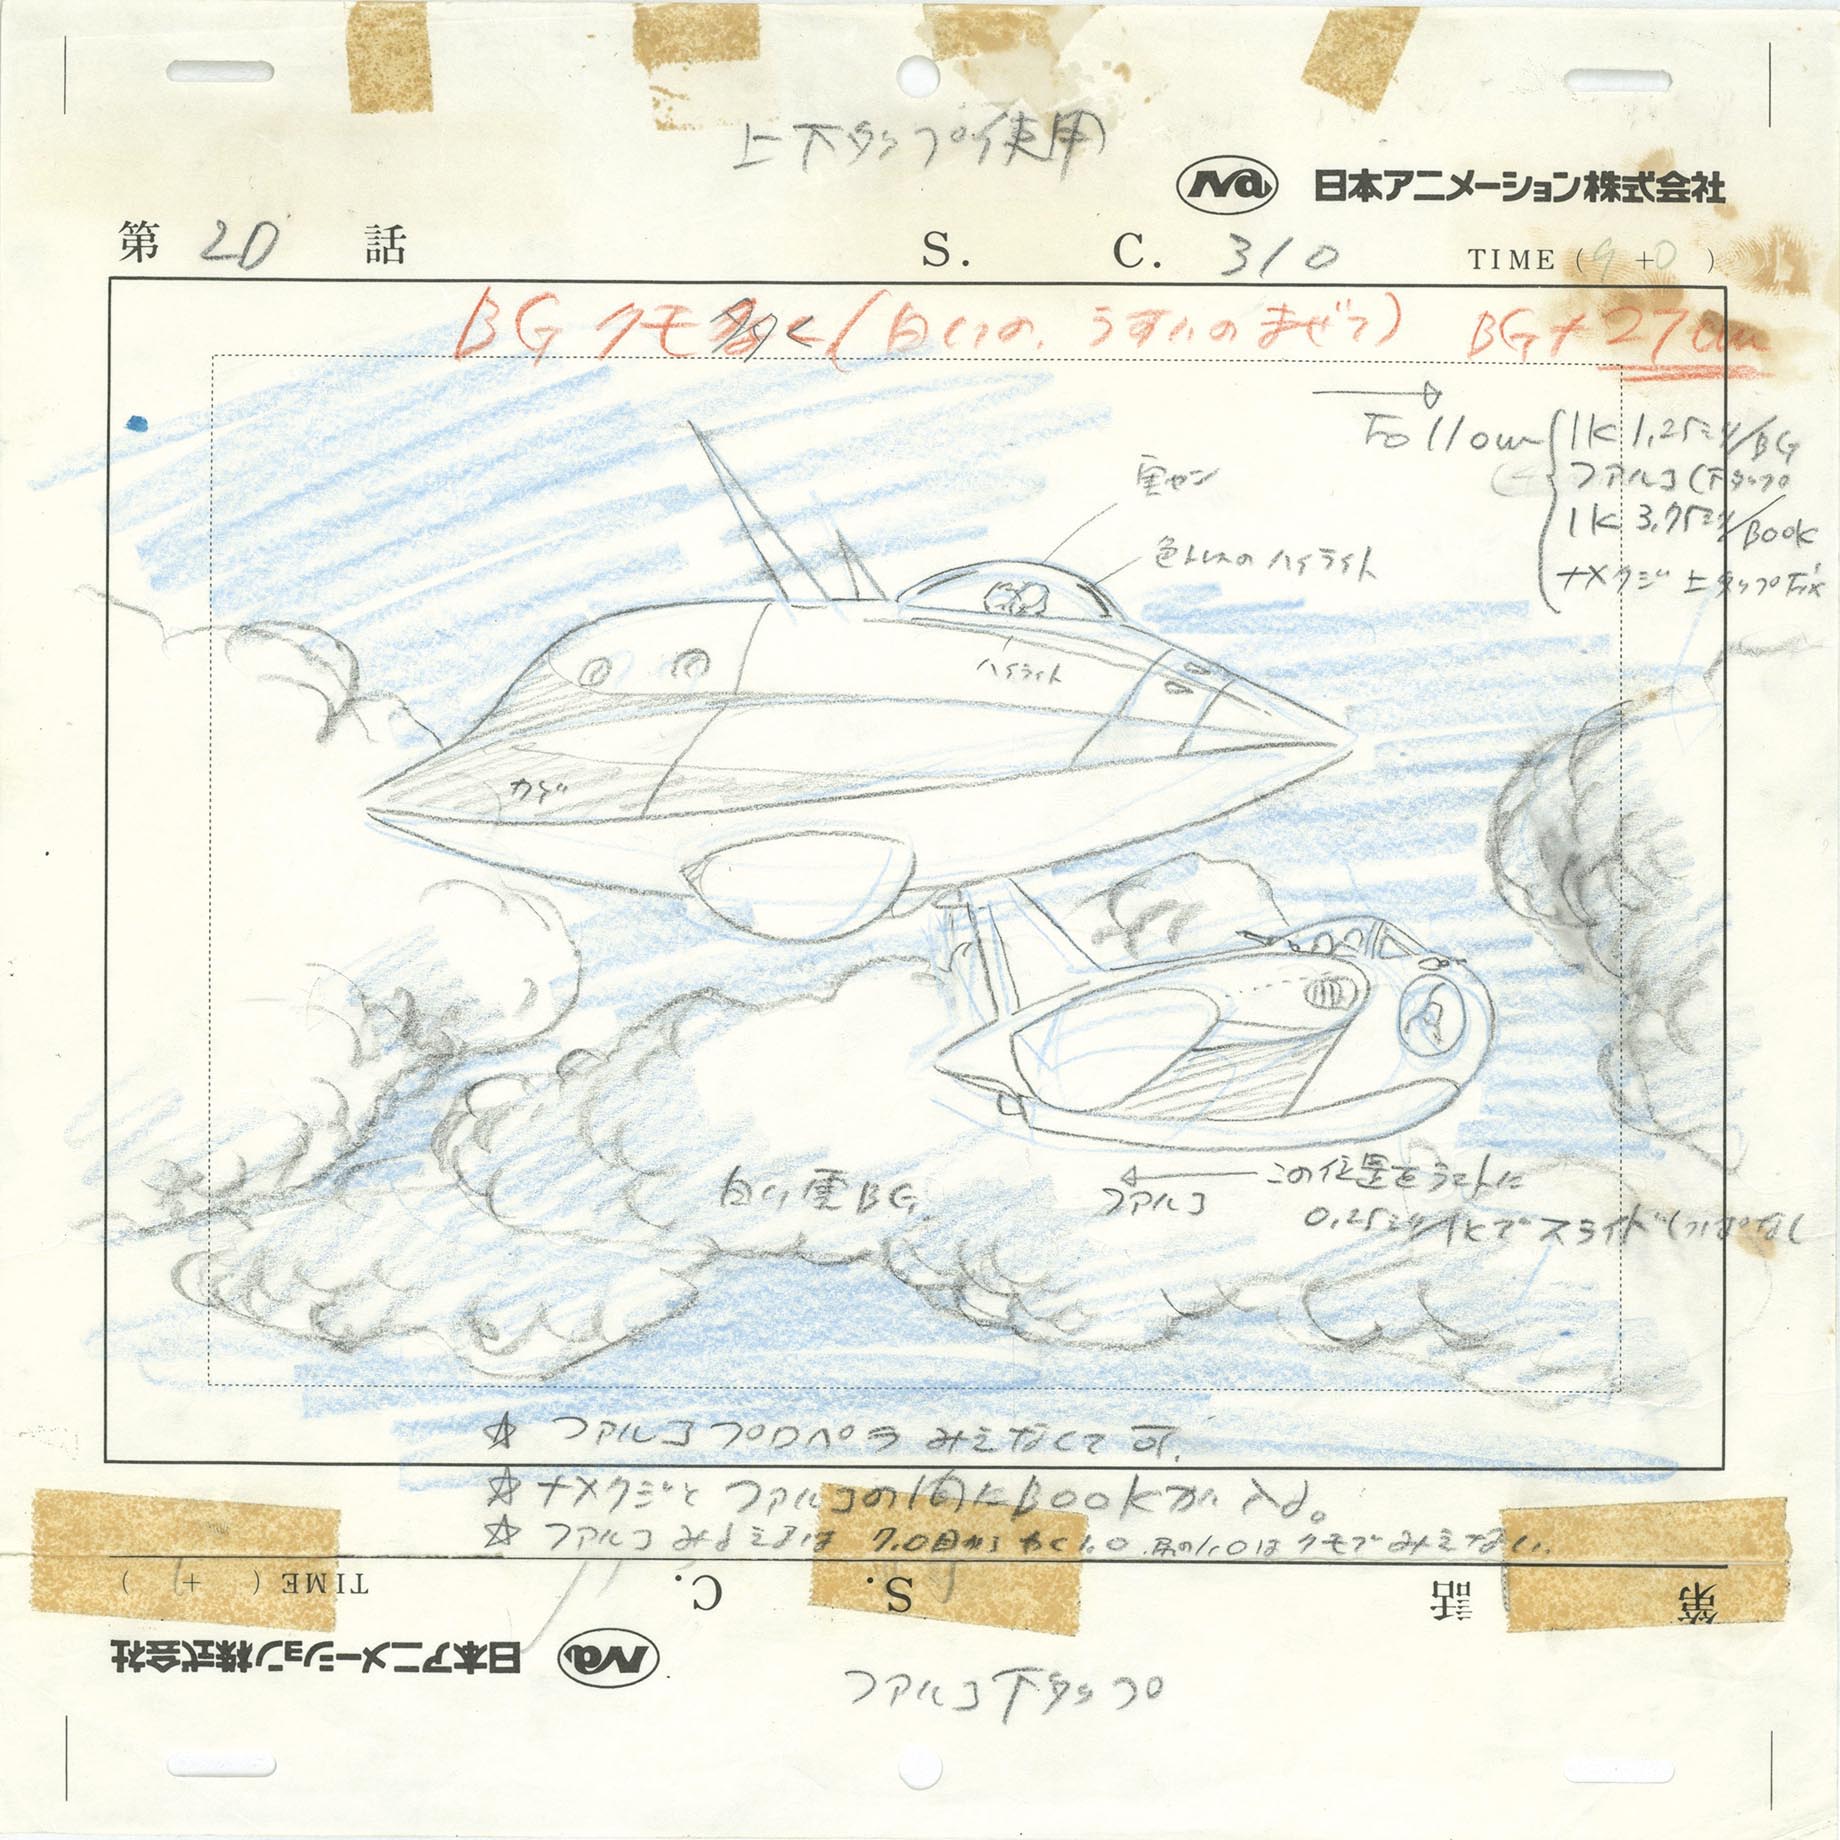 上下タップ使用
Na 日本アニメーション株式会社
第 20 話 S. C. 310 TIME ( 9 +0 )
BG クモ多く(白いの、うすいのまぜて) BG+27cm
→
Follow 1K 1,25ミリ/BG
ファルコ(下タップ
1K 3,75ミリ/Book
ナメクジ 上タップFix
実セン
色トレスのハイライト
ハイライト
カゲ
白い雲BG.
← この位置をラストに
ファルコ
0,25ミリ/1Kでスライド
☆ ファルコプロペラ みえなくて可.
☆ ナメクジと ファルコの間にBOOKが入る。
☆ ファルコ クモでみえない.
第 話 S. C. TIME ( + )
Na 日本アニメーション株式会社
ファルコ下タップ